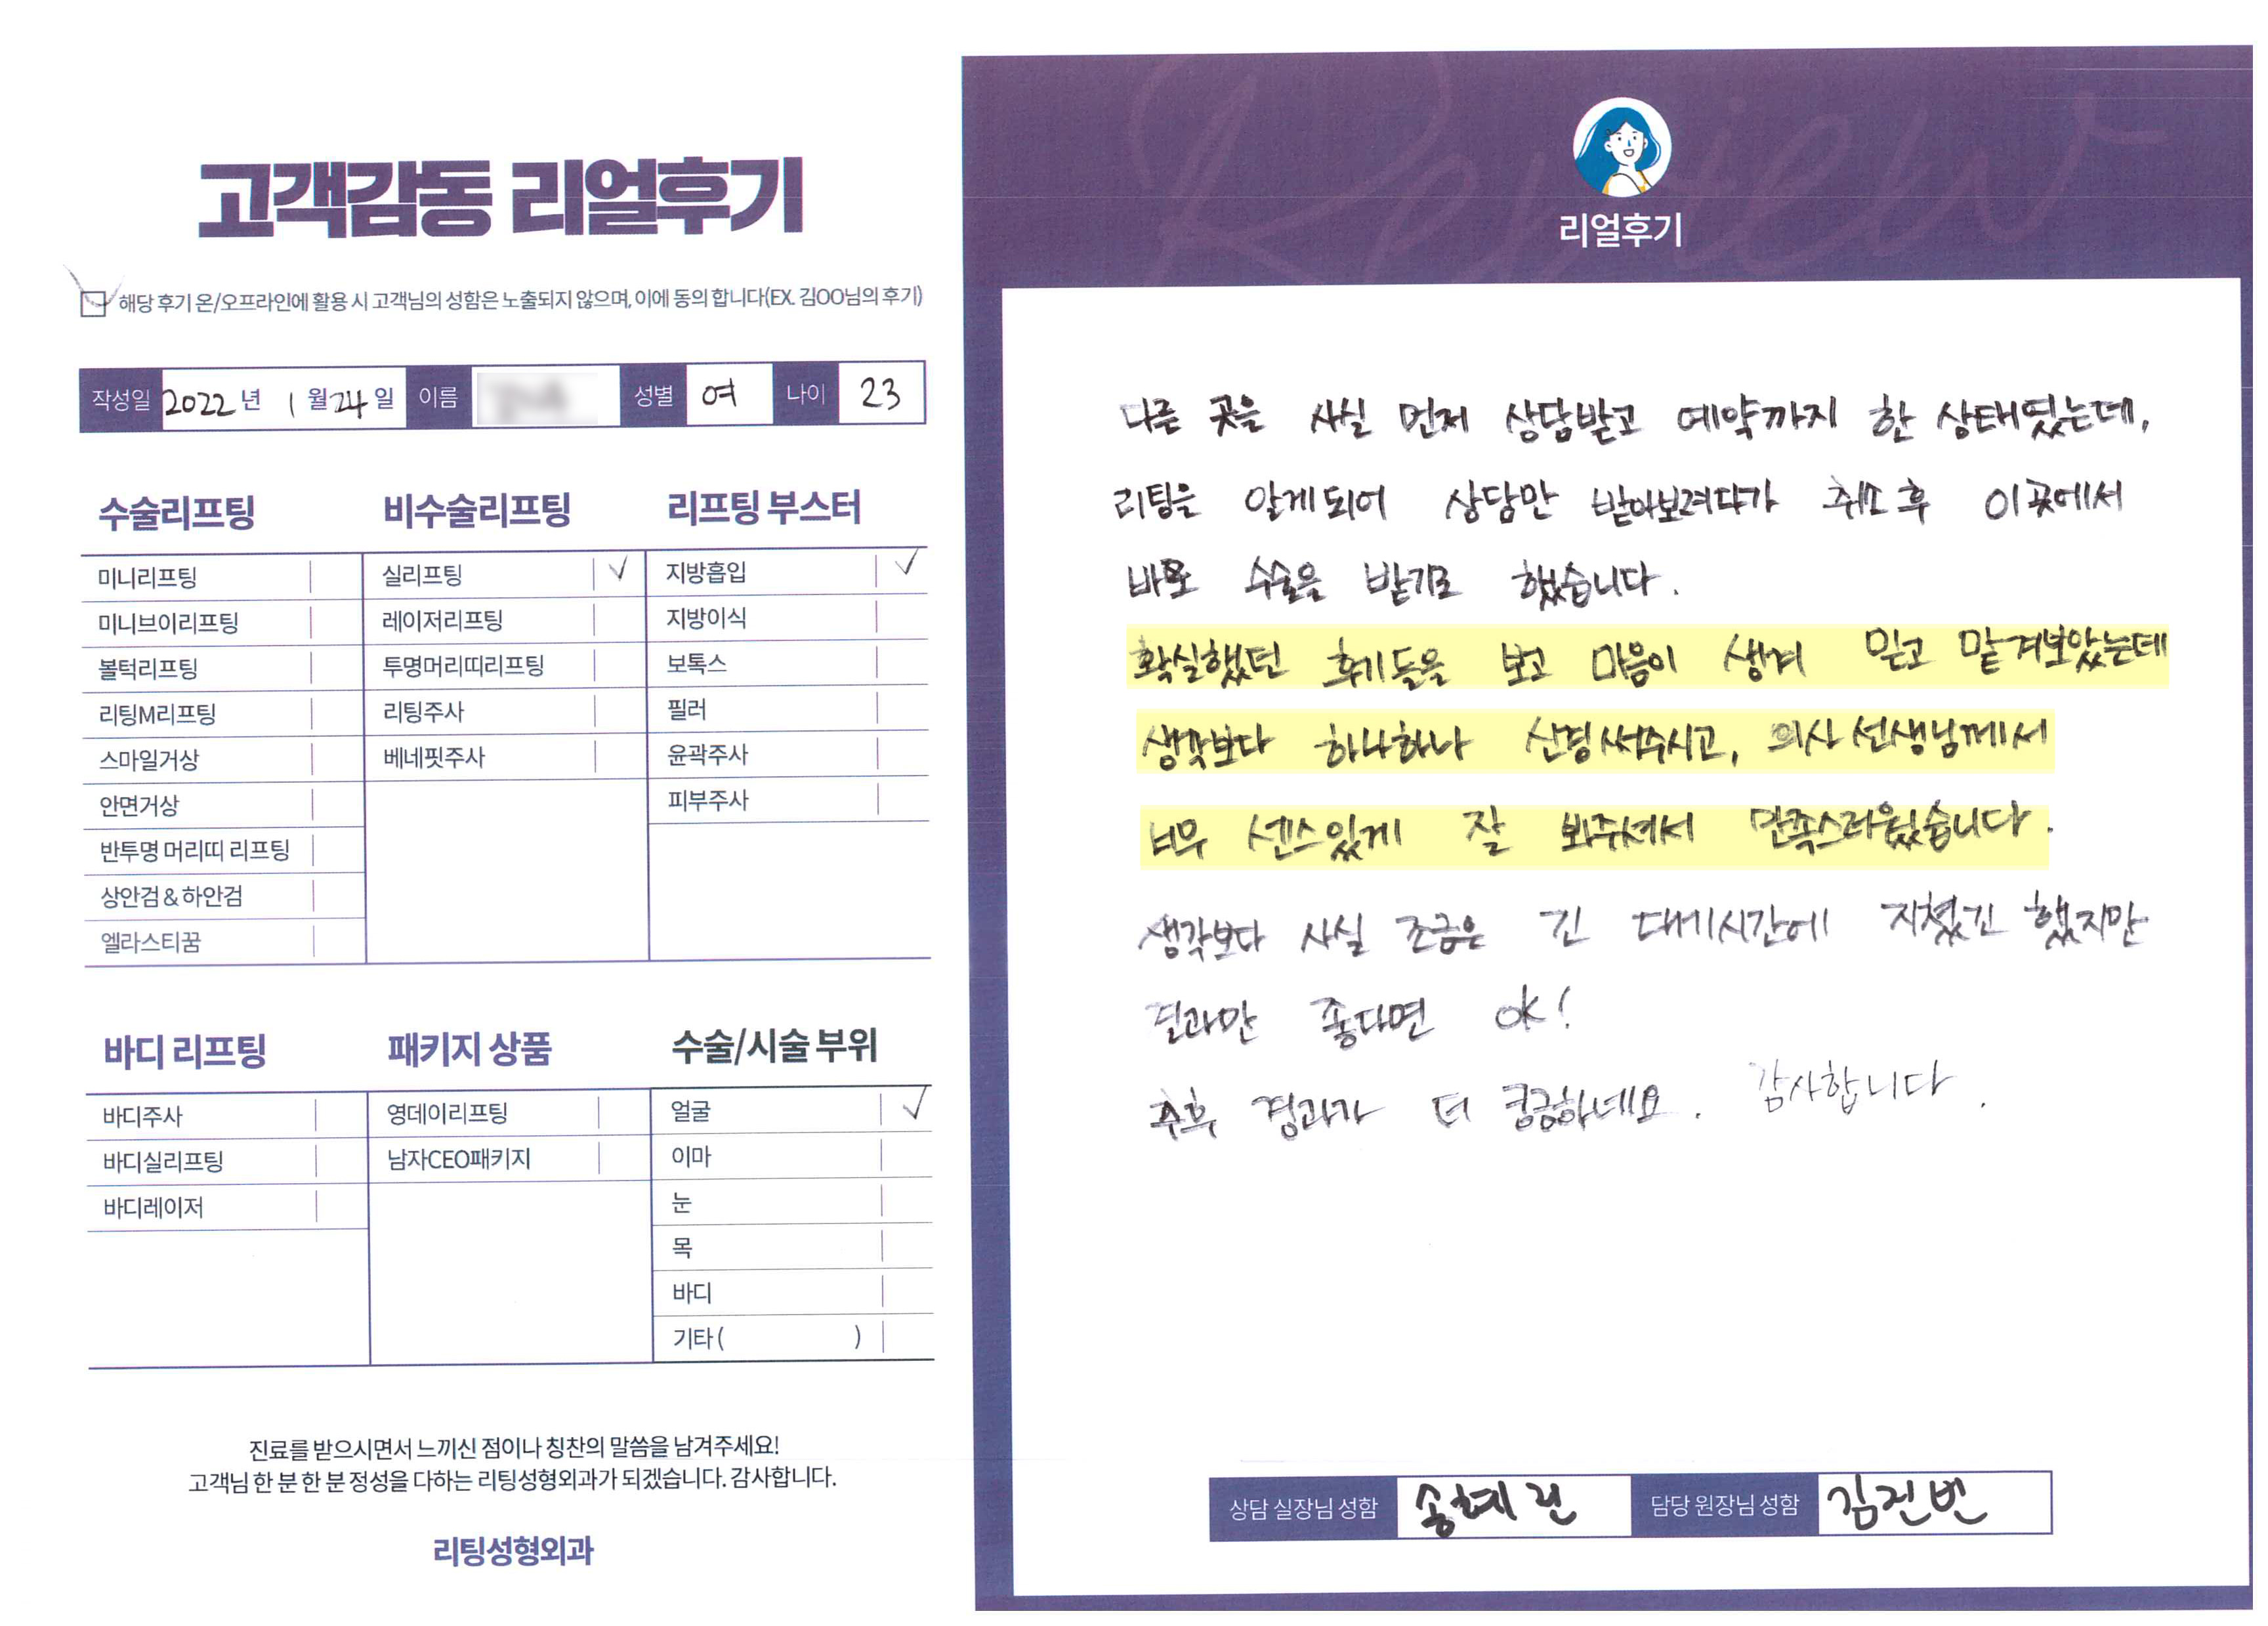 고객감동 리얼후기
해당 후기 온/오프라인에 활용 시 고객님의 성함은 노출되지 않으며, 이에 동의 합니다(EX. 김OO님의 후기)
작성일 2022년 1월 24일 이름 성별 여 나이 23
수술리프팅
미니리프팅
미니브이리프팅
볼턱리프팅
리팅M리프팅
스마일거상
안면거상
반투명 머리띠 리프팅
상안검&하안검
엘라스티꿈
비수술리프팅
실리프팅 ✓
레이저리프팅
투명머리띠리프팅
리팅주사
베네핏주사
리프팅 부스터
지방흡입 ✓
지방이식
보톡스
필러
윤곽주사
피부주사
바디 리프팅
바디주사
바디실리프팅
바디레이저
패키지 상품
영데이리프팅
남자CEO패키지
수술/시술 부위
얼굴 ✓
이마
눈
목
바디
기타 ( )
진료를 받으시면서 느끼신 점이나 칭찬의 말씀을 남겨주세요!
고객님 한 분 한 분 정성을 다하는 리팅성형외과가 되겠습니다. 감사합니다.
리팅성형외과
Review
리얼후기
다른 곳을 사실 먼저 상담받고 예약까지 한 상태였는데,
리팅을 알게되어 상담만 받아보려다가 취소 후 이곳에서
바로 수술을 받기로 했습니다.
확실했던 후기들을 보고 마음이 생겨 믿고 맡겨보았는데
생각보다 하나하나 신경써주시고, 의사선생님께서
너무 센스있게 잘 봐주셔서 만족스러웠습니다.
생각보다 사실 조금은 긴 대기시간에 지쳤긴 했지만
결과만 좋다면 ok!
추후 경과가 더 궁금하네요. 감사합니다.
상담 실장님 성함 송혜린 담당 원장님 성함